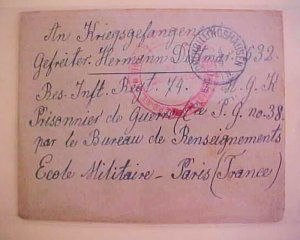 An Kriegsgefangenen
Gefreiter. Hermann 632.
Res. Inft. Regt. 74. M.G.K
Prisonnier de Guerre P.G. no. 38.
par le Bureau de Renseignements
Ecole Militaire - Paris (France)